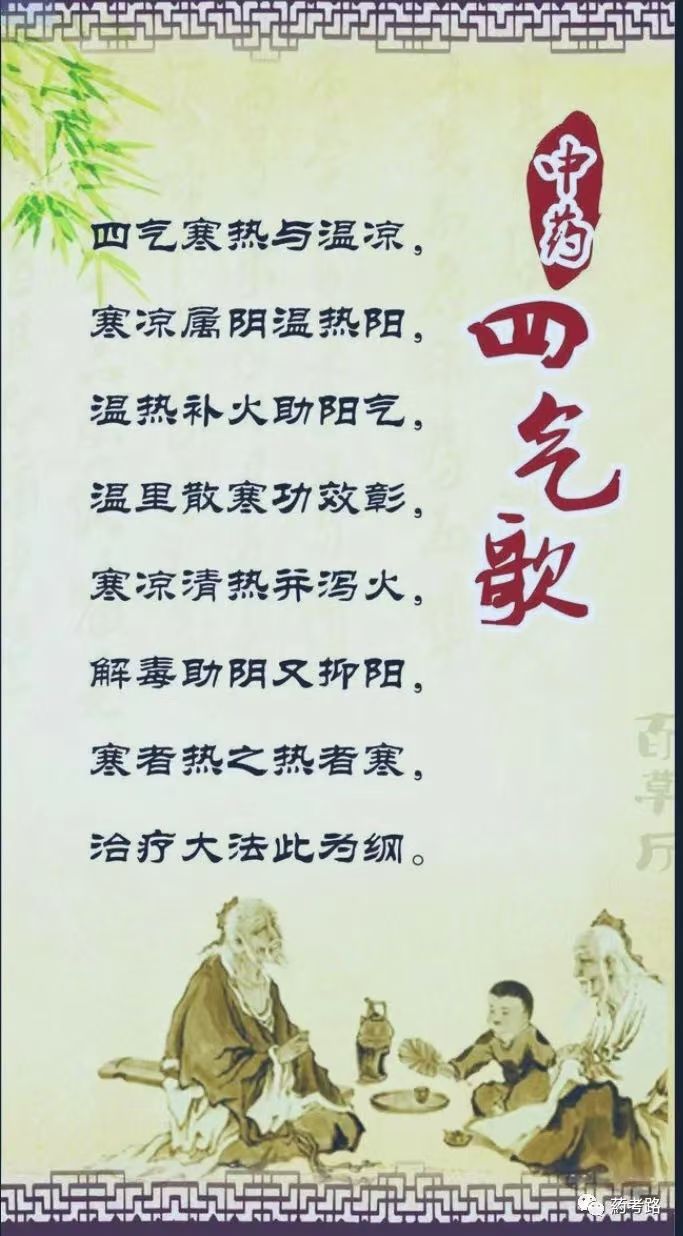 中药
四气歌
四气寒热与温凉，
寒凉属阴温热阳，
温热补火助阳气，
温里散寒功效彰，
寒凉清热并泻火，
解毒助阴又抑阳，
寒者热之热者寒，
治疗大法此为纲。
百草厅
药考路